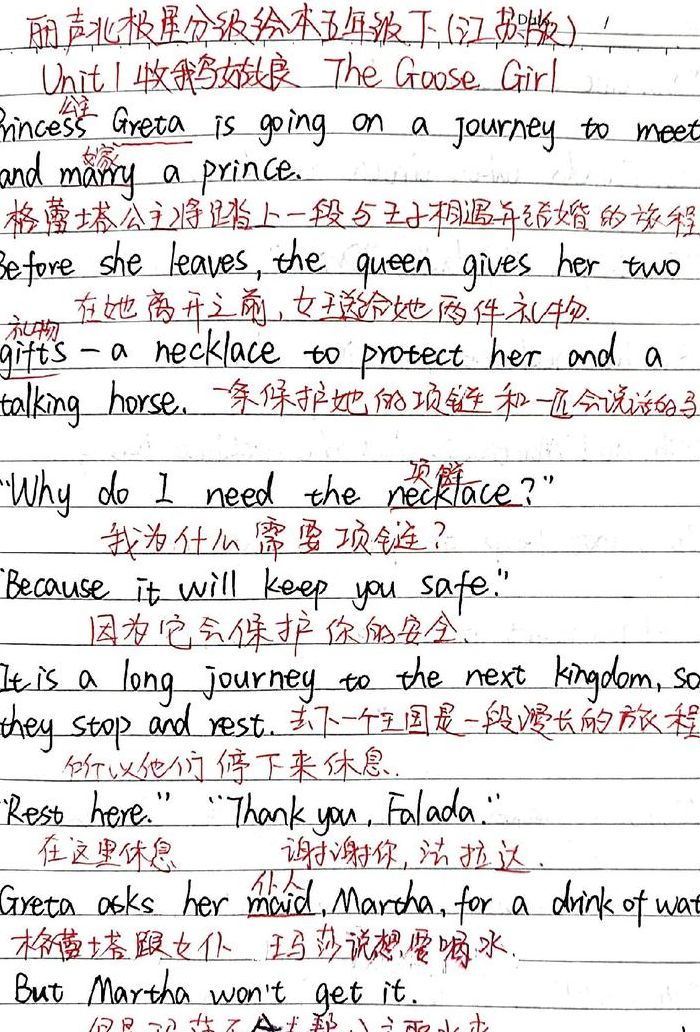 丽声北极星分级绘本五年级下(江苏版)
Unit 1 牧鹅姑娘 The Goose Girl
公主
Princess Greta is going on a journey to meet
嫁
and marry a prince.
格蕾塔公主将踏上一段与王子相遇并结婚的旅程
Before she leaves, the queen gives her two
在她离开之前,女王送给她两件礼物.
礼物
gifts - a necklace to protect her and a
talking horse. 一条保护她的项链和一匹会说话的马
项链
"Why do I need the necklace?"
我为什么需要项链?
"Because it will keep you safe."
因为它会保护你的安全.
It is a long journey to the next kingdom, so
they stop and rest. 去下一个王国是一段漫长的旅程
所以他们停下来休息.
"Rest here." "Thank you, Falada."
在这里休息 谢谢你,法拉达.
仆人
Greta asks her maid, Martha, for a drink of wat
格蕾塔跟女仆 玛莎说想要喝水.
But Martha won't get it.